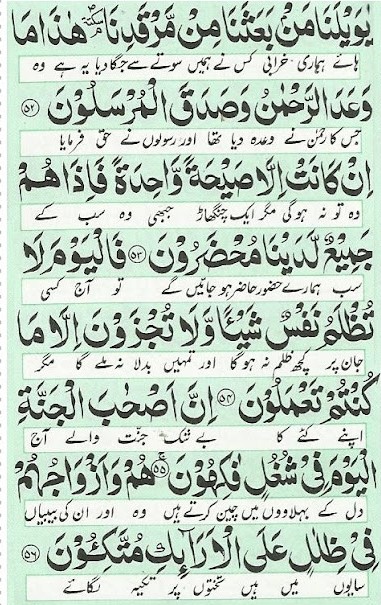 يٰوَيْلَنَا مَنْۢ بَعَثَنَا مِنْ مَّرْقَدِنَا ۜ هٰذَا مَا
ہائے ہماری خرابی کس نے ہمیں سوتے سے جگا دیا یہ ہے وہ
وَعَدَ الرَّحْمٰنُ وَصَدَقَ الْمُرْسَلُوْنَ ﴿۵۲﴾
جس کا رحمٰن نے وعدہ دیا تھا اور رسولوں نے حق فرمایا
اِنْ كَانَتْ اِلَّا صَيْحَةً وَّاحِدَةً فَاِذَا هُمْ
وہ تو نہ ہوگی مگر ایک چنگھاڑ جبھی وہ سب کے
جَمِيْعٌ لَّدَيْنَا مُحْضَرُوْنَ ﴿۵۳﴾ فَالْيَوْمَ لَا
سب ہمارے حضور حاضر ہو جائیں گے تو آج کسی
تُظْلَمُ نَفْسٌ شَيْـًٔا وَّلَا تُجْزَوْنَ اِلَّا مَا
جان پر کچھ ظلم نہ ہوگا اور تمہیں بدلا نہ ملے گا مگر
كُنْتُمْ تَعْمَلُوْنَ ﴿۵۴﴾ اِنَّ اَصْحٰبَ الْجَنَّةِ
اپنے کئے کا بے شک جنت والے آج
الْيَوْمَ فِيْ شُغُلٍ فٰكِهُوْنَ ﴿۵۵﴾ هُمْ وَاَزْوَاجُهُمْ
دل کے بہلاووں میں چین کرتے ہیں وہ اور ان کی بیبیاں
فِيْ ظِلٰلٍ عَلَى الْاَرَآئِكِ مُتَّكِـُٔوْنَ ﴿۵۶﴾
سایوں میں ہیں تختوں پر تکیہ لگائے